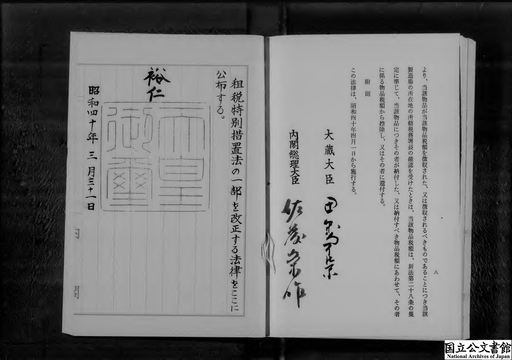 より、当該物品が当該物品税額を徴収された、又は徴収されるべきものであることにつき当該
製造場の所在地の所轄税務署長の確認を受けたときは、当該物品税額は、新法第二十八条の規
定に準じて、当該物品につきその者が納付した、又は納付すべき物品税額にあわせて、その者
に係る物品税額から控除し、又はその者に還付する。
附則
この法律は、昭和四十年四月一日から施行する。
八
大蔵大臣 田中角榮
内閣総理大臣 佐藤榮作
租税特別措置法の一部を改正する法律をここに
公布する。
裕仁
天皇
御璽
昭和四十年三月三十一日
国立公文書館
National Archives of Japan